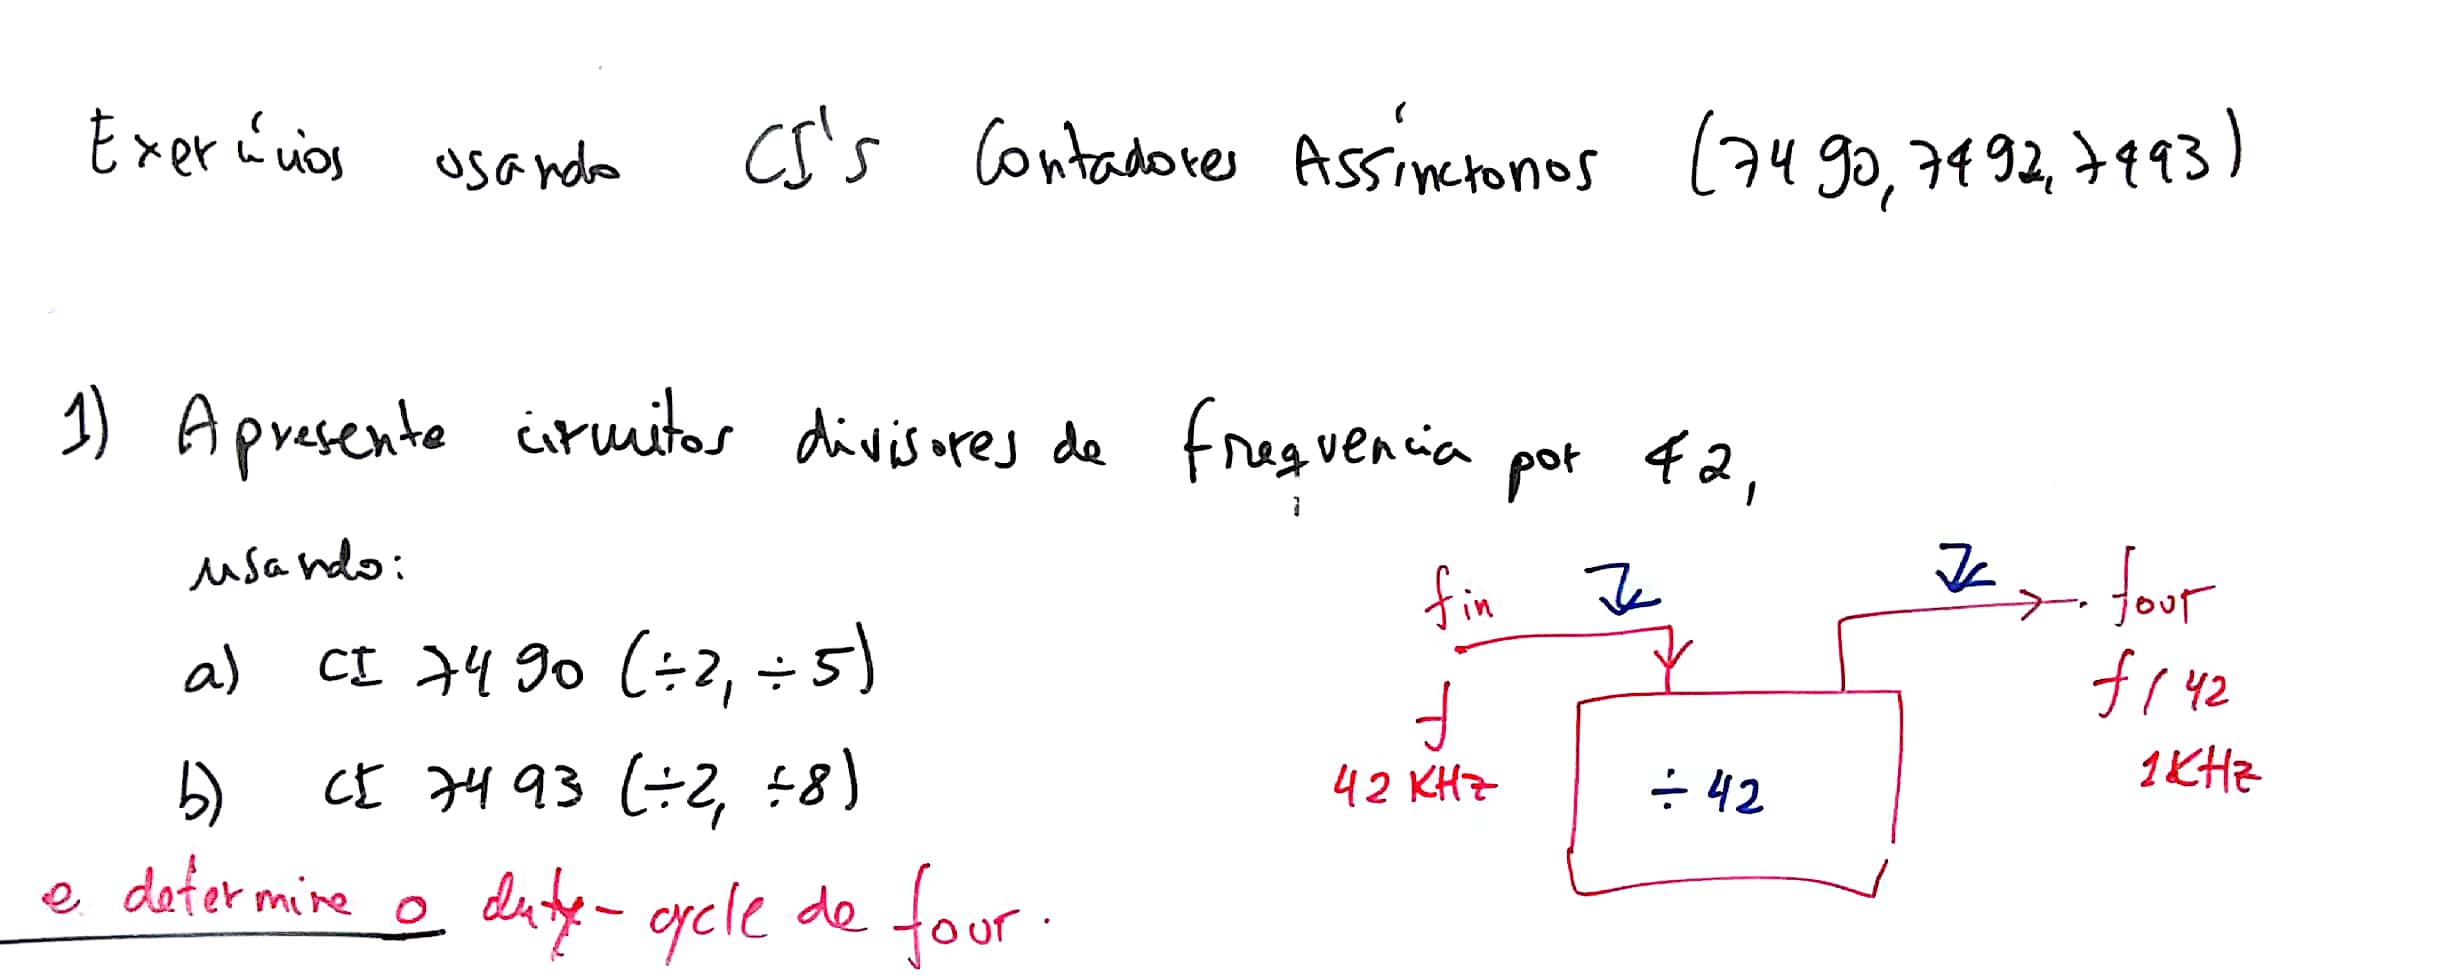 Exercícios usando CI's Contadores Assíncronos (7490, 7492, 7493)
1) Apresente circuitos divisores de frequencia por 42,
usando:
a) CI 7490 (÷2, ÷5)
b) CI 7493 (÷2, ÷8)
e determine o duty-cycle de four.
fin
f
42 KHz
÷ 42
four
f / 42
1KHz